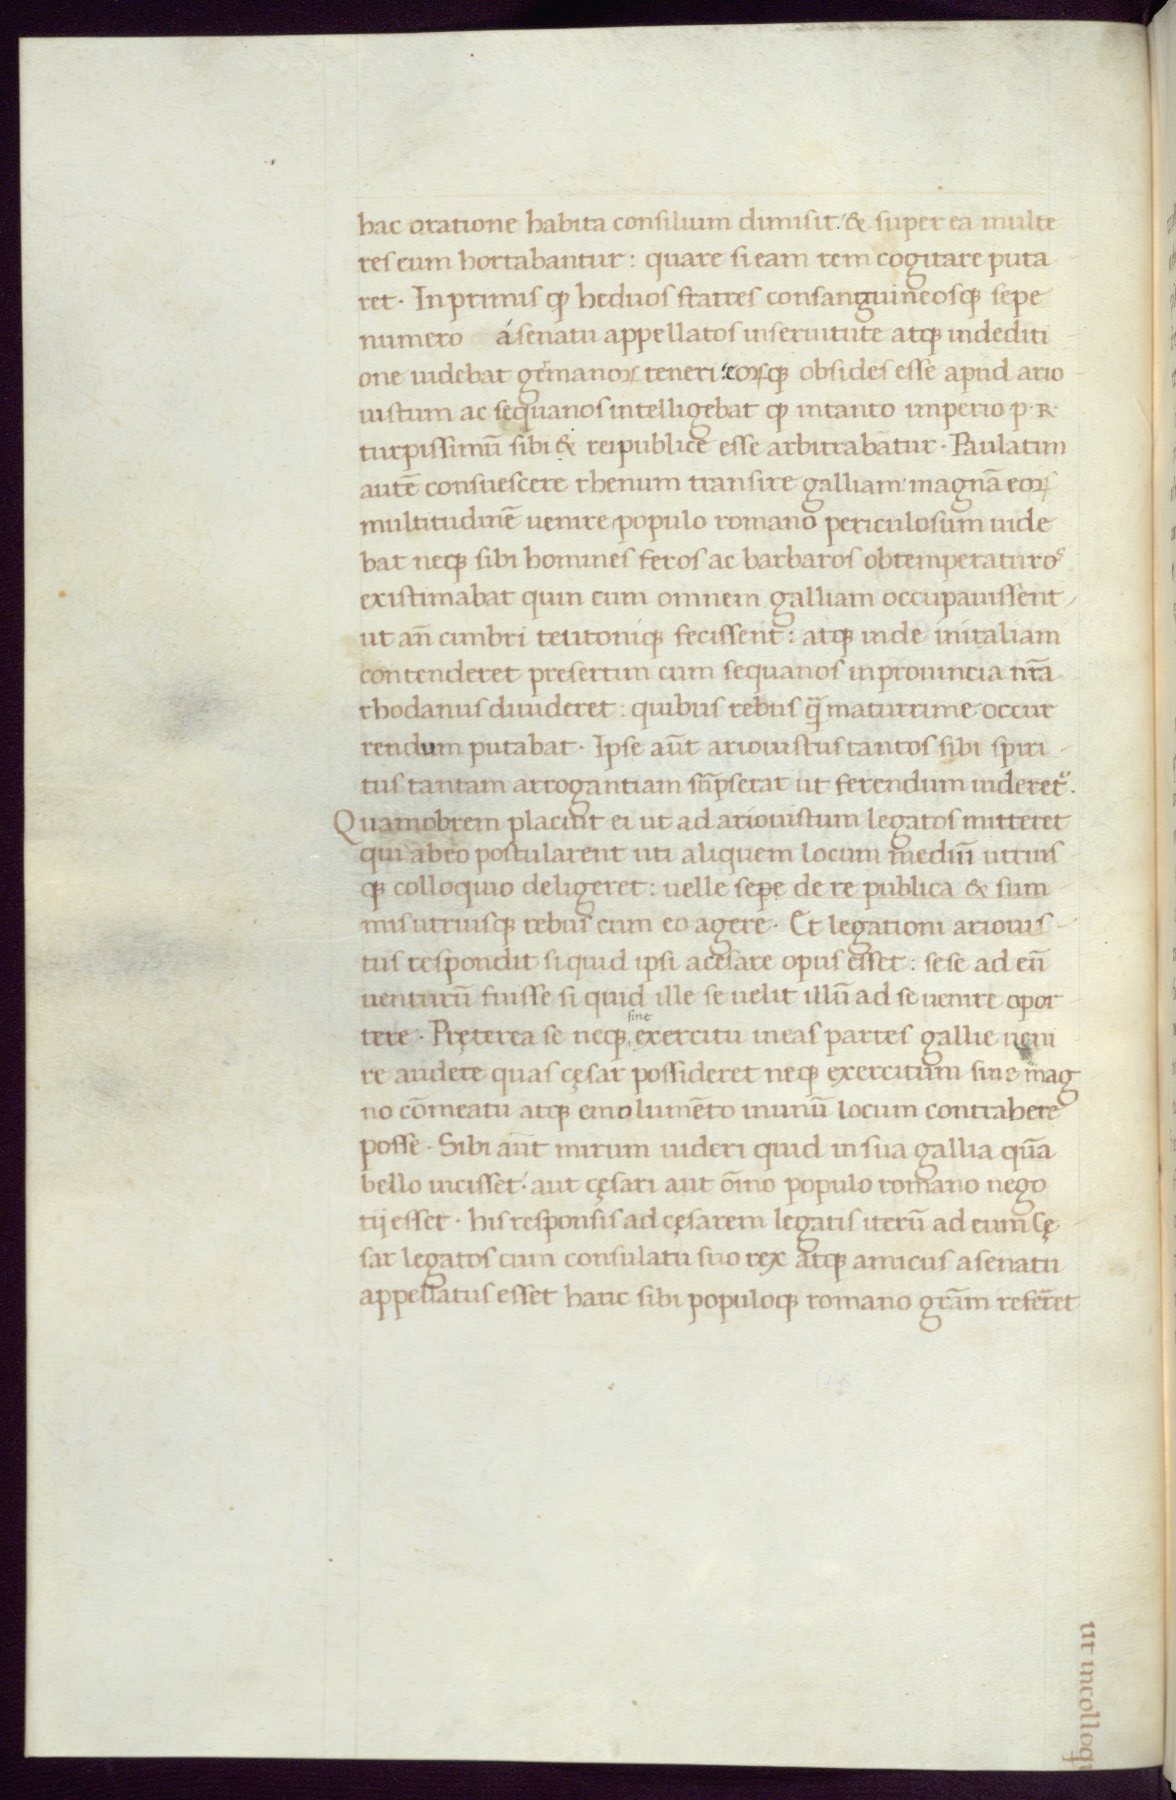 hac oratione habita consilium dimisit: & super ea multe
res eum hortabantur: quare si eam rem cogitare puta
ret. In primis qꝫ heduos fratres consanguineosqꝫ sepe
numero á senatu appellatos in seruitute atqꝫ in dediti
one uidebat germanoꝝ teneri: eoꝝqꝫ obsides esse apud ario
uistum ac sequanos intelligebat qꝫ in tanto imperio p. R.
turpissimū sibi & reipublice esse arbitrabatur. Paulatim
autē consuescere rhenum transire galliam: magnā eoꝝ
multitudinē uenire populo romano periculosum uide
bat neqꝫ sibi homines feros ac barbaros obtemperaturos
existimabat quin cum omnem galliam occupauissent
ut an̄ cimbri teutoniqꝫ fecissent: atqꝫ inde in italiam
contenderet presertim cum sequanos in prouincia nr̄a
rhodanus diuideret: quibus rebus q̄ maturrime occur
rendum putabat. Ipse aūt ariouistus tantos sibi spiri
tus tantam arrogantiam sūpserat ut ferendum uideret᷑.
Quamobrem placuit ei ut ad ariouistum legatos mitteret
qui ab eo postularent uti aliquem locum mediū utrius
qꝫ colloquio deligeret: uelle sepe de re publica & sum
mis utriusqꝫ rebus cum eo agere. Et legationi ariouis
tus respondit si quid ipsi a cesare opus esset: sese ad eū
uenturū fuisse si quid ille se uelit illū ad se uenire opor
tere. Pręterea se neqꝫ sine exercitu in eas partes gallie ueni
re audere quas cęsar possideret neqꝫ exercitum sine mag
no cōmeatu atqꝫ emolumēto in unū locum contrahere
posse. Sibi aūt mirum uideri quid in sua gallia quā
bello uicisset: aut cęsari aut oīno populo romano nego
tij esset. his responsis ad cęsarem legatis iterū ad eum cę
sar legatos cum consulatu suo rex atqꝫ amicus a senatu
appellatus esset hanc sibi populoqꝫ romano grām referret
ut in colloq